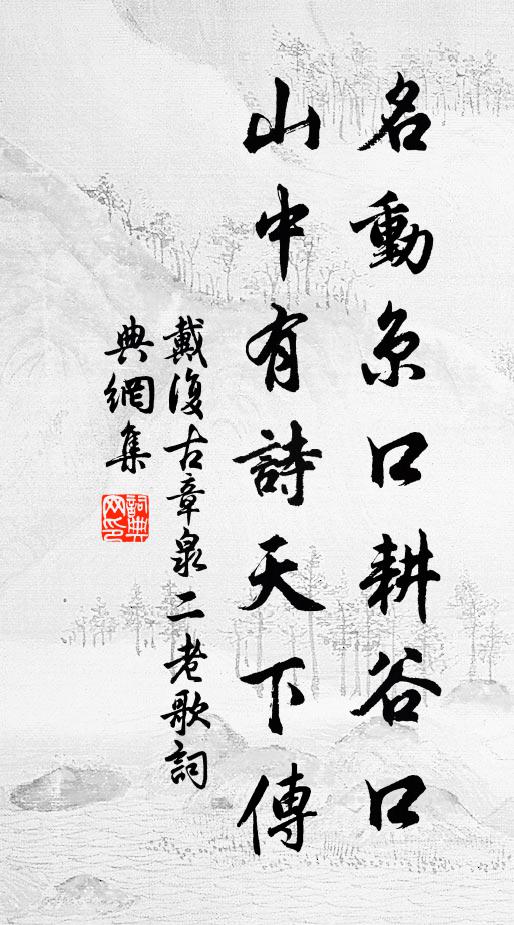 名動京口耕谷口
山中有詩天下傳
戴復古章泉二老歌詞
典網集
詞典
网印